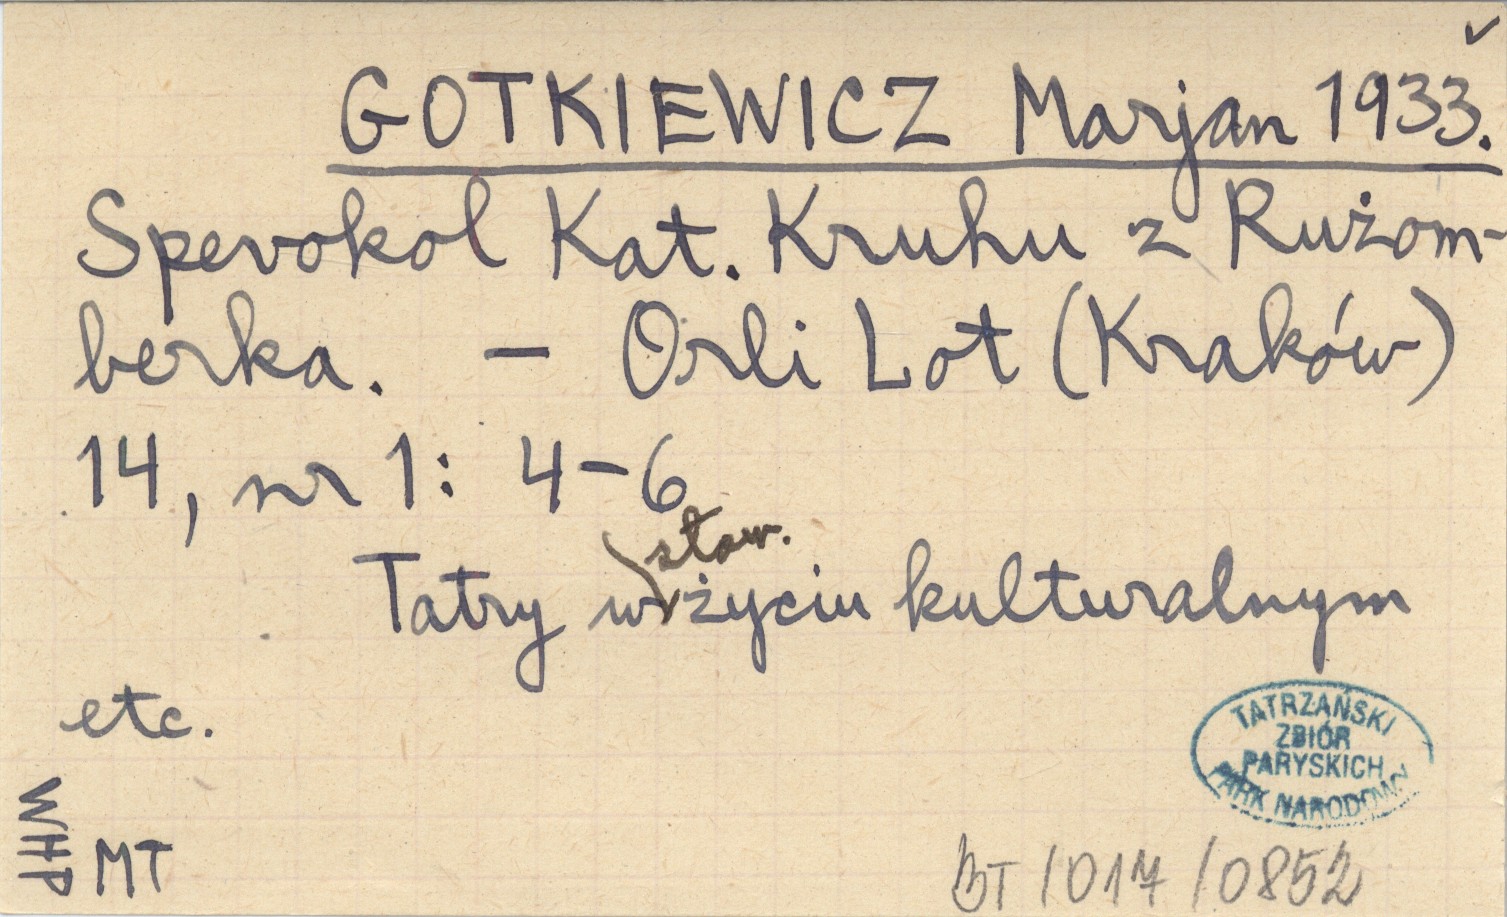 GOTKIEWICZ Marjan 1933.
Spevokol Kat. Kruhu z Rużom-
berka. - Orli Lot (Kraków)
14, nr 1: 4-6
słow.
Tatry w życiu kulturalnym
etc.
TATRZAŃSKI
ZBIÓR
PARYSKICH
PARK NARODOWY
WHP
MT
BT/017/0852